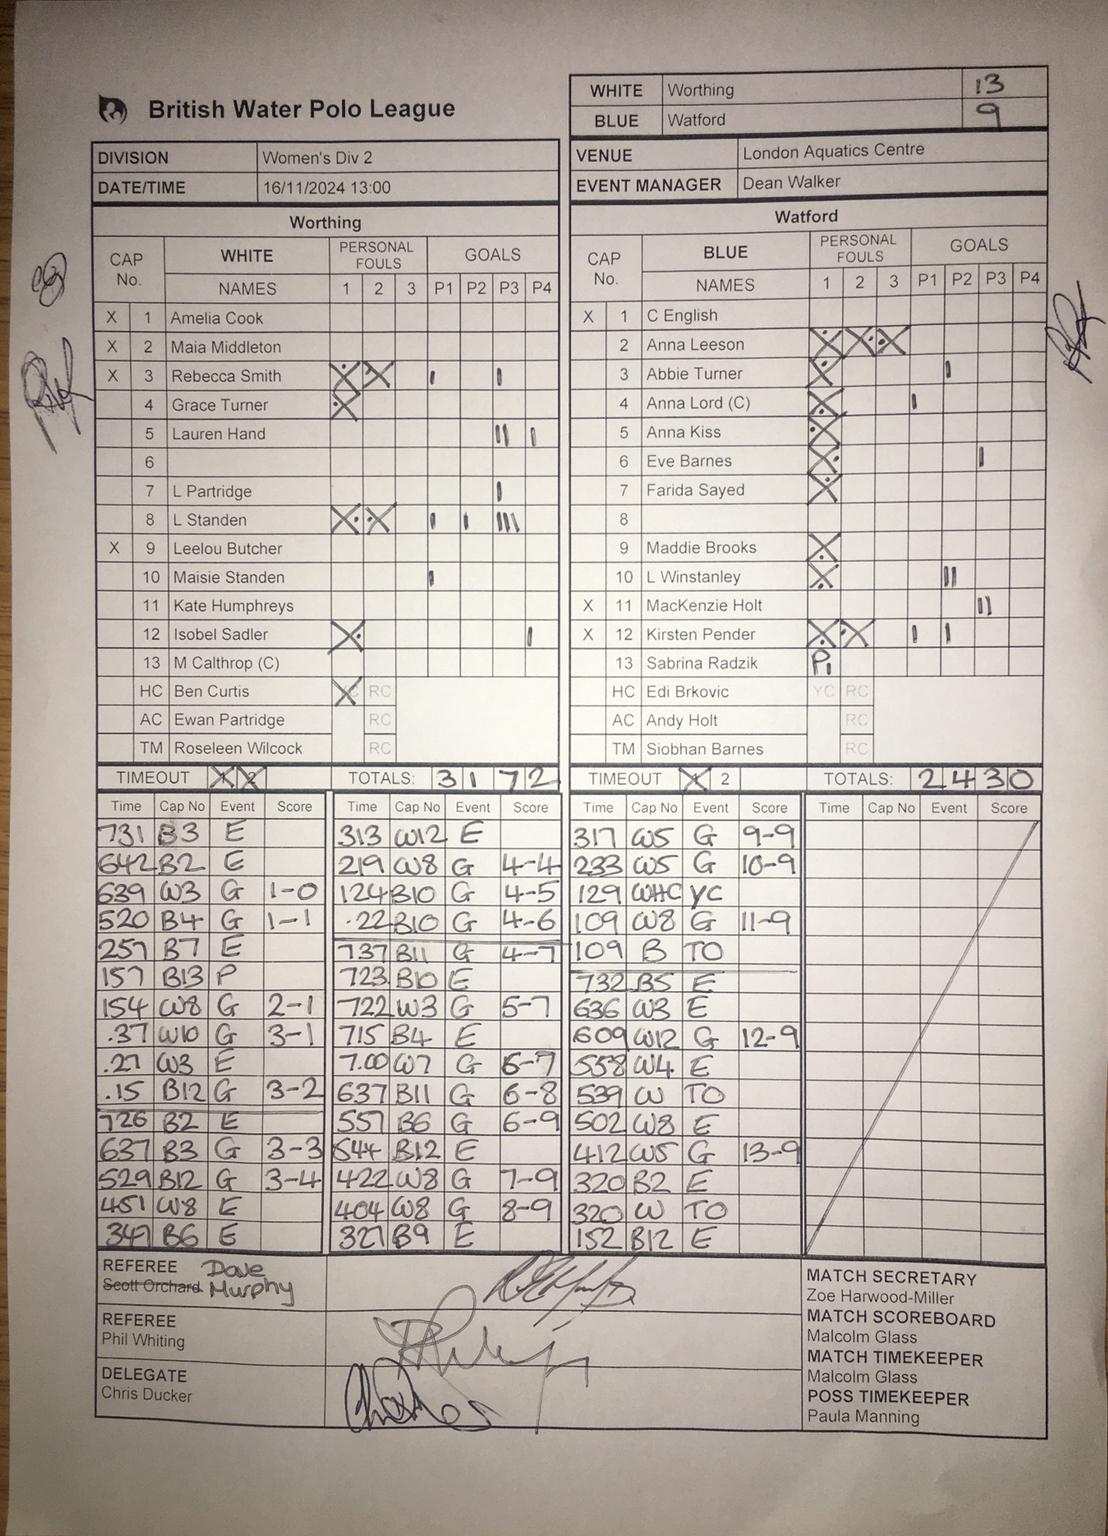 British Water Polo League
WHITE Worthing 13
BLUE Watford 9
DIVISION Women's Div 2
DATE/TIME 16/11/2024 13:00
VENUE London Aquatics Centre
EVENT MANAGER Dean Walker
Worthing
CAP No. WHITE PERSONAL FOULS GOALS
NAMES 1 2 3 P1 P2 P3 P4
X 1 Amelia Cook
X 2 Maia Middleton
X 3 Rebecca Smith X X I I
4 Grace Turner X
5 Lauren Hand II I
6
7 L Partridge I
8 L Standen X X I I III
X 9 Leelou Butcher
10 Maisie Standen I
11 Kate Humphreys
12 Isobel Sadler X I
13 M Calthrop (C)
HC Ben Curtis X RC
AC Ewan Partridge RC
TM Roseleen Wilcock RC
TIMEOUT 1 2 TOTALS: 3 1 7 2
Watford
CAP No. BLUE PERSONAL FOULS GOALS
NAMES 1 2 3 P1 P2 P3 P4
X 1 C English
2 Anna Leeson X X X
3 Abbie Turner X I
4 Anna Lord (C) X I
5 Anna Kiss X
6 Eve Barnes X I
7 Farida Sayed X
8
9 Maddie Brooks X
10 L Winstanley X II
X 11 MacKenzie Holt II
X 12 Kirsten Pender X X I I
13 Sabrina Radzik P1
HC Edi Brkovic YC RC
AC Andy Holt RC
TM Siobhan Barnes RC
TIMEOUT 1 2 TOTALS: 2 4 3 0
Time Cap No Event Score
731 B3 E
642 B2 E
639 W3 G 1-0
520 B4 G 1-1
257 B7 E
157 B13 P
154 W8 G 2-1
.37 W10 G 3-1
.27 W3 E
.15 B12 G 3-2
726 B2 E
637 B3 G 3-3
529 B12 G 3-4
451 W8 E
347 B6 E
Time Cap No Event Score
313 W12 E
219 W8 G 4-4
124 B10 G 4-5
.22 B10 G 4-6
737 B11 G 4-7
723 B10 E
722 W3 G 5-7
715 B4 E
7.00 W7 G 6-7
637 B11 G 6-8
557 B6 G 6-9
544 B12 E
422 W8 G 7-9
404 W8 G 8-9
327 B9 E
Time Cap No Event Score
317 W5 G 9-9
233 W5 G 10-9
129 WHC YC
109 W8 G 11-9
109 B TO
732 B5 E
636 W3 E
609 W12 G 12-9
558 W4 E
539 W TO
502 W8 E
412 W5 G 13-9
320 B2 E
320 W TO
152 B12 E
Time Cap No Event Score
REFEREE Dave
Scott Orchard Murphy
REFEREE
Phil Whiting
DELEGATE
Chris Ducker
MATCH SECRETARY
Zoe Harwood-Miller
MATCH SCOREBOARD
Malcolm Glass
MATCH TIMEKEEPER
Malcolm Glass
POSS TIMEKEEPER
Paula Manning